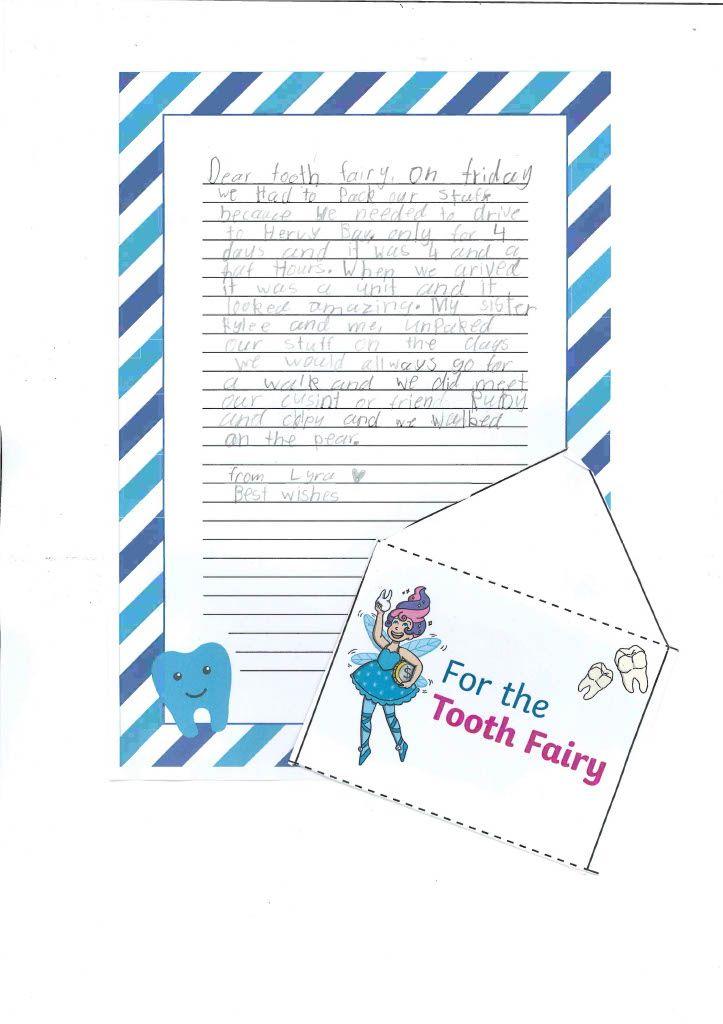 Dear tooth fairy, on friday
we Had to Pack our stuff
because we needed to drive
to Hervy Bay, only for 4
days and it was 4 and a
haf Hours. When we arived
it was a unit and it
looked amazing. My sister
Rylee and me, unpaked
our stuff on the days
we would allways go for
a walk and we did meet
our cusint or friend Ruby
and and we walked
on the pear.
from Lyra ♥
Best wishes
For the
Tooth Fairy